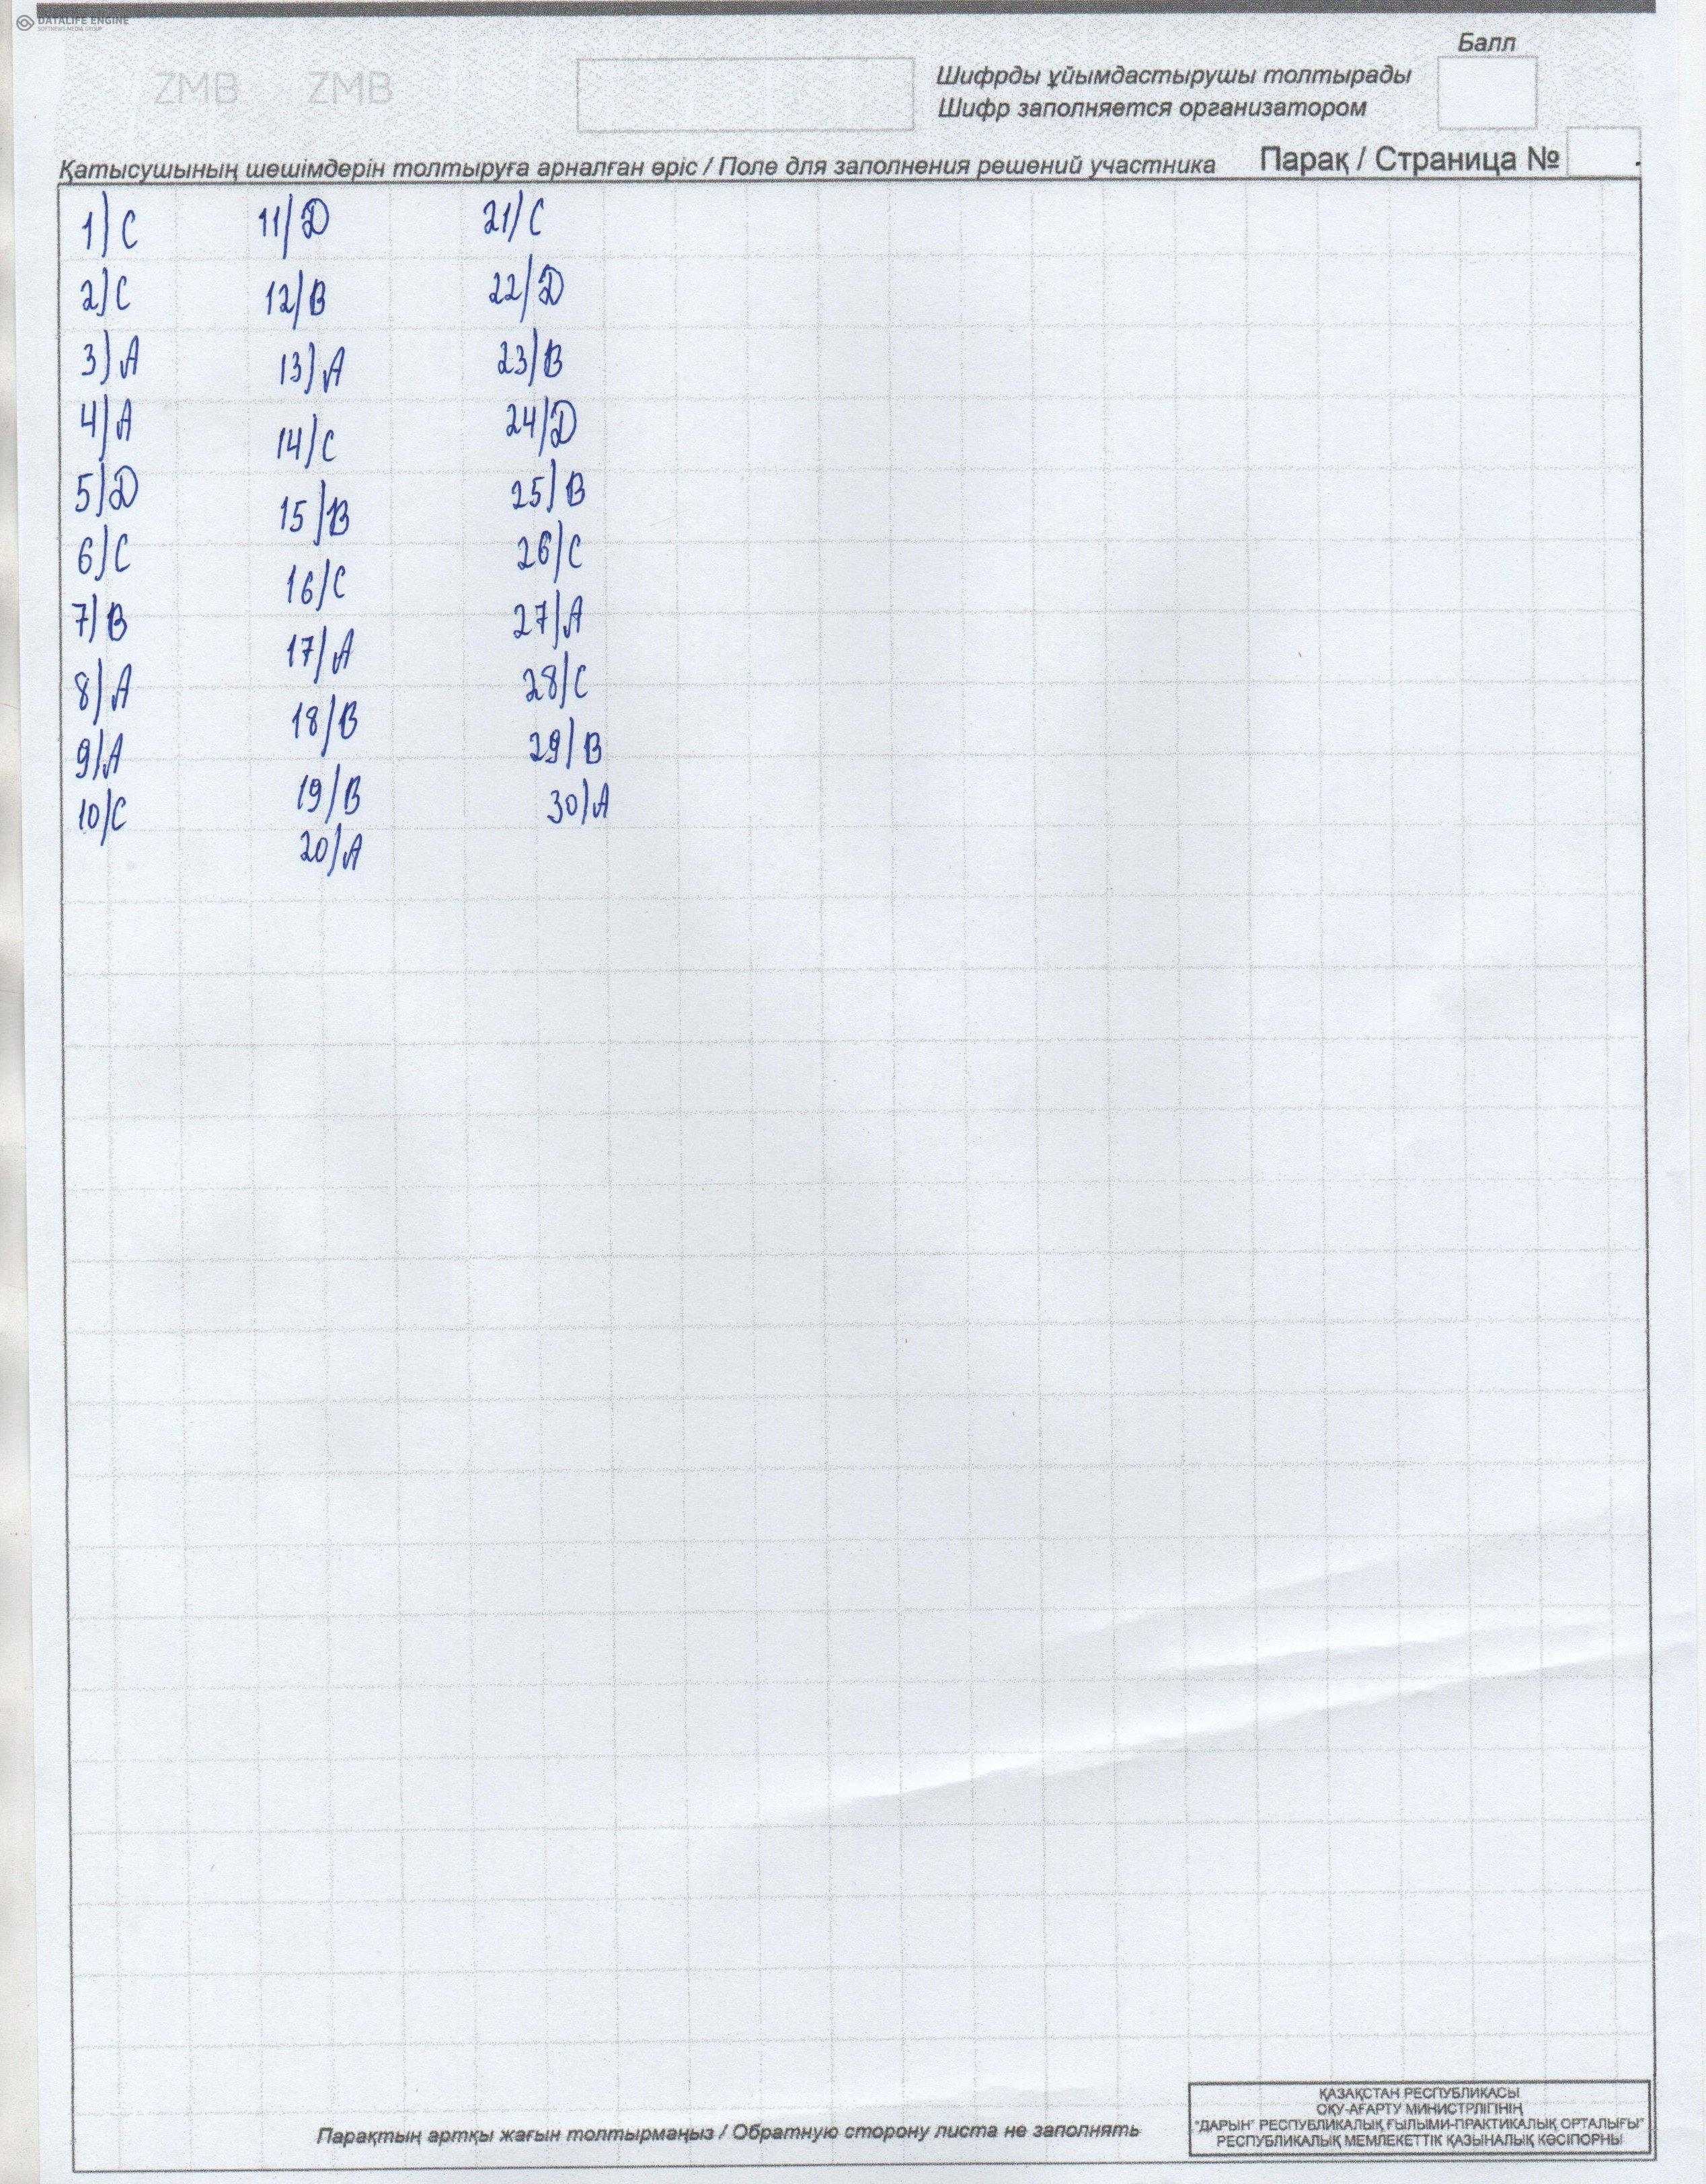 DATALIFE ENGINE
SOFTNEWS MEDIA GROUP
ZMB ZMB
Балл
Шифрды ұйымдастырушы толтырады
Шифр заполняется организатором
Қатысушының шешімдерін толтыруға арналған өріс / Поле для заполнения решений участника
Парақ / Страница №
1) C
2) C
3) A
4) A
5) D
6) C
7) B
8) A
9) A
10) C
11) D
12) B
13) A
14) C
15) B
16) C
17) A
18) B
19) B
20) A
21) C
22) D
23) B
24) D
25) B
26) C
27) A
28) C
29) B
30) A
Парақтың артқы жағын толтырмаңыз / Обратную сторону листа не заполнять
ҚАЗАҚСТАН РЕСПУБЛИКАСЫ
ОҚУ-АҒАРТУ МИНИСТРЛІГІНІҢ
"ДАРЫН" РЕСПУБЛИКАЛЫҚ ҒЫЛЫМИ-ПРАКТИКАЛЫҚ ОРТАЛЫҒЫ"
РЕСПУБЛИКАЛЫҚ МЕМЛЕКЕТТІК ҚАЗЫНАЛЫҚ КӘСІПОРНЫ